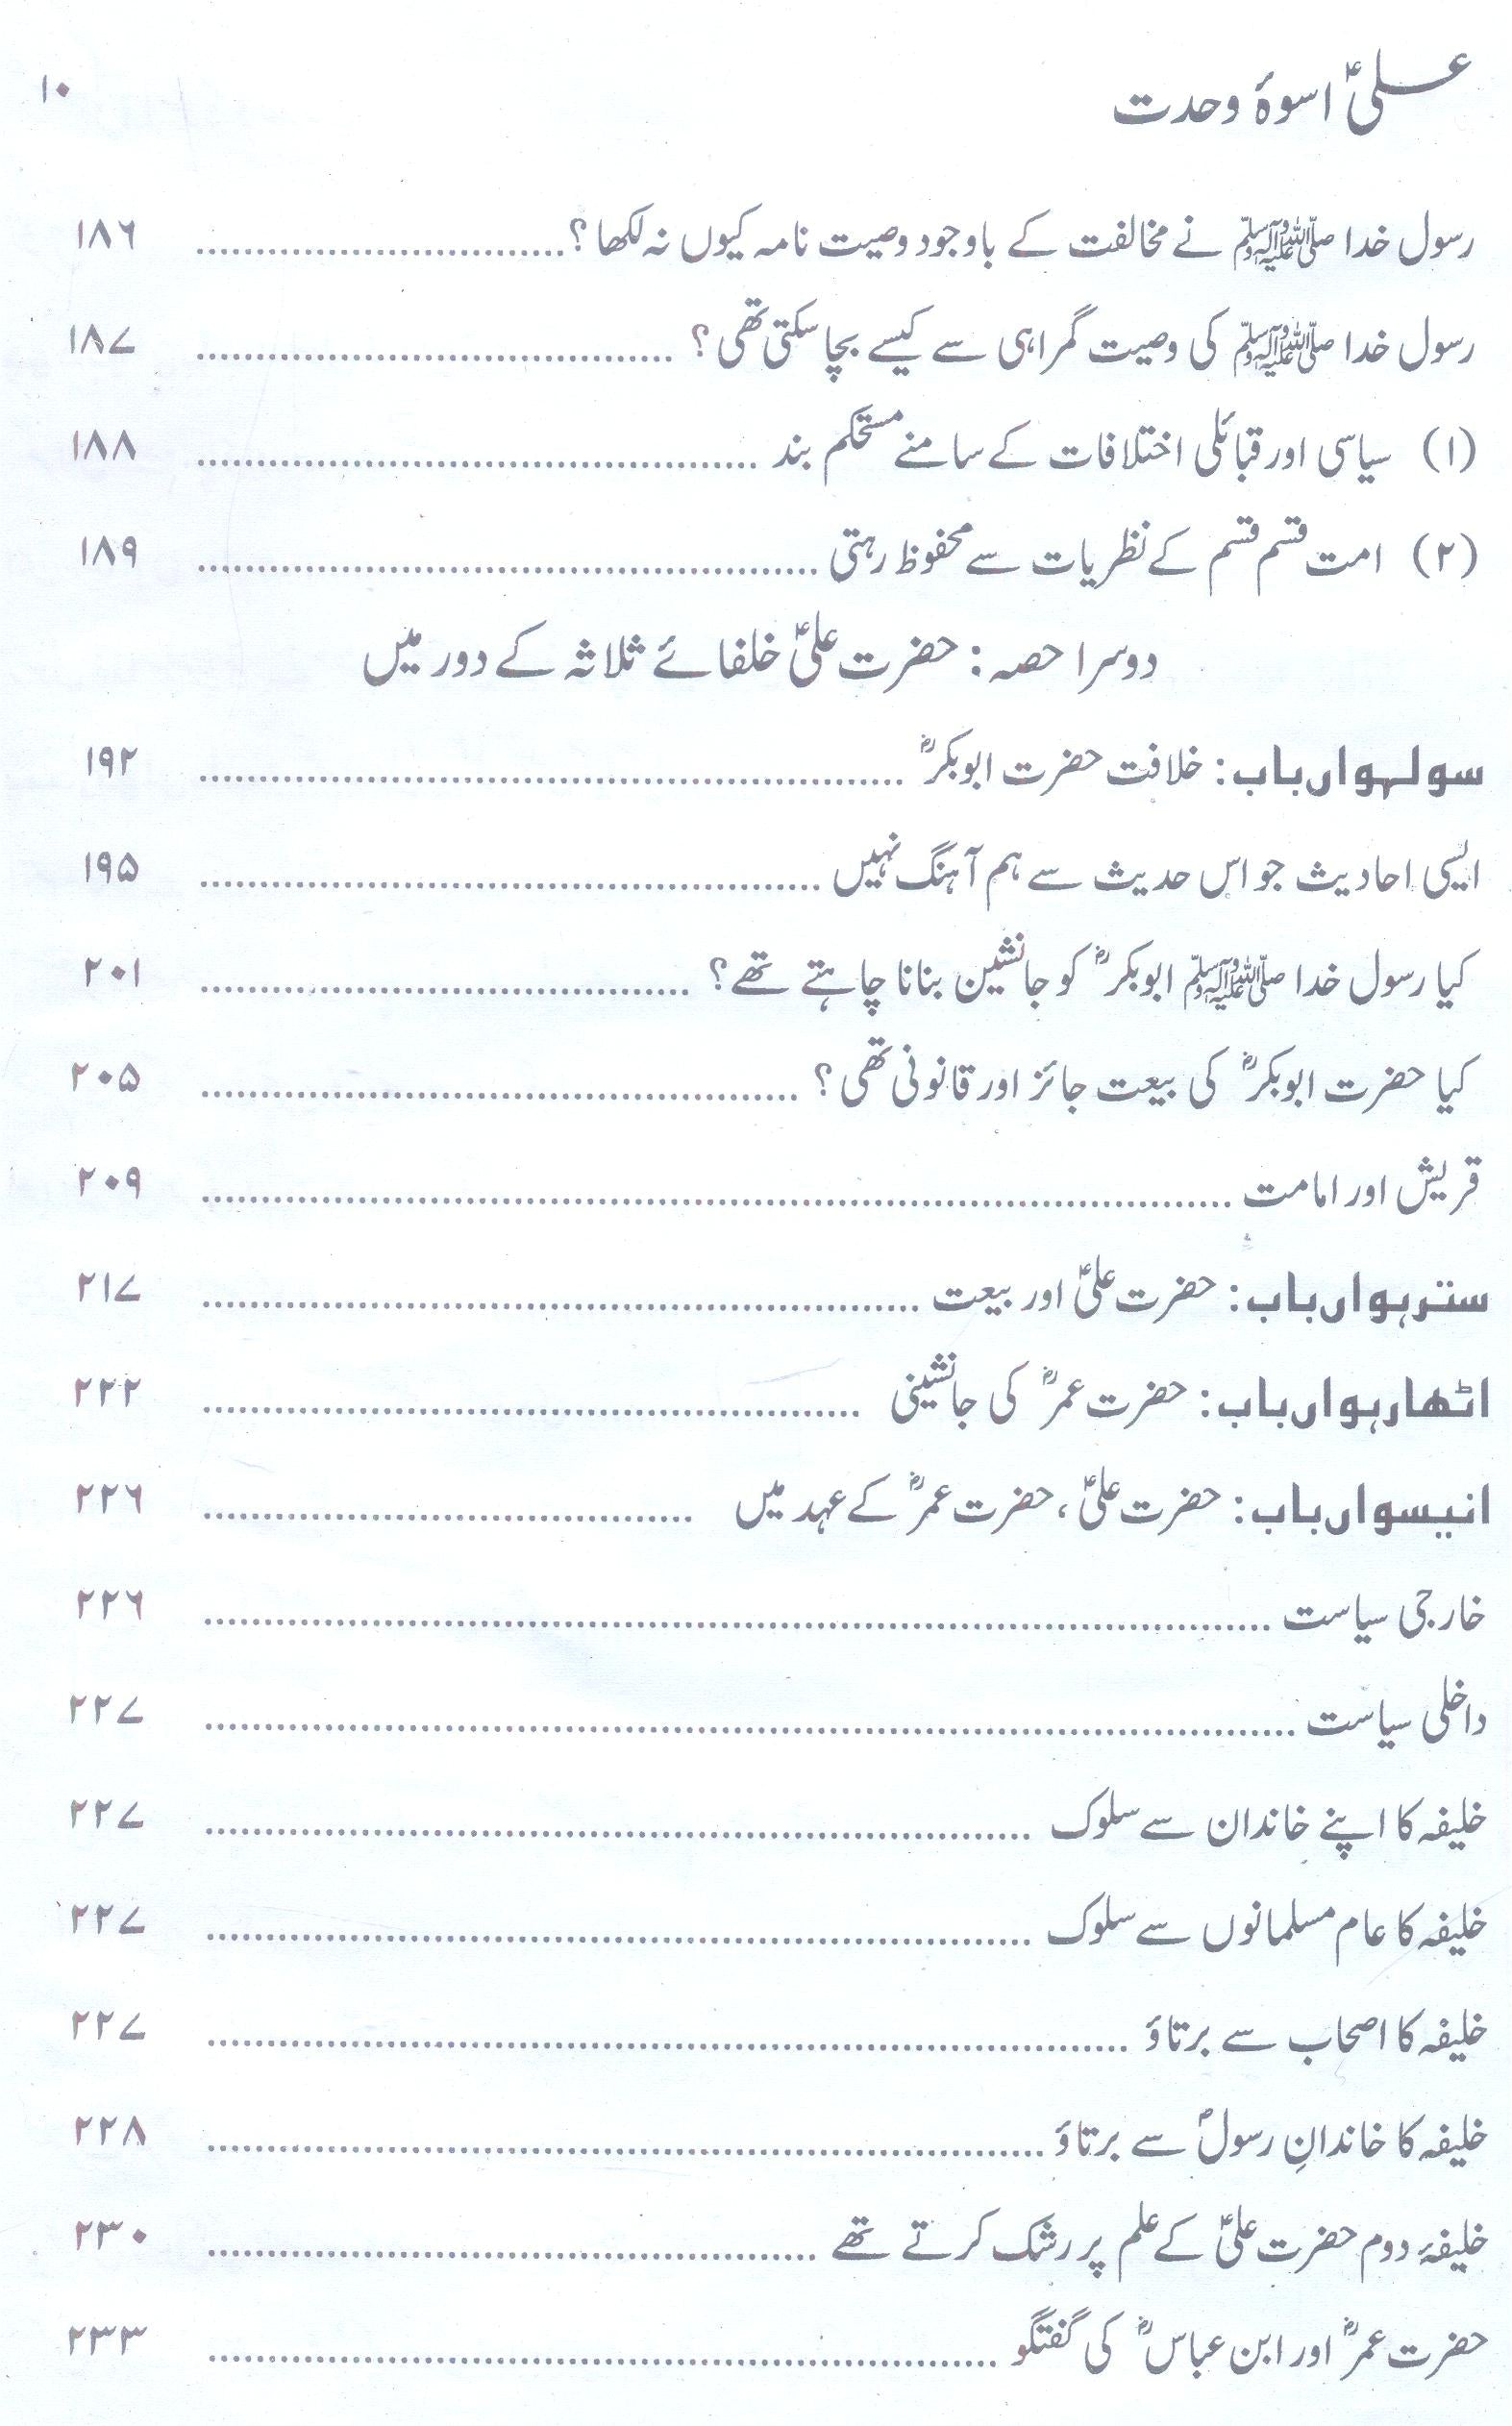 علیؑ اسوۂ وحدت ۱۰
رسول خدا ﷺ نے مخالفت کے باوجود وصیت نامہ کیوں نہ لکھا؟ ۱۸۶
رسول خدا ﷺ کی وصیت گمراہی سے کیسے بچا سکتی تھی؟ ۱۸۷
(۱) سیاسی اور قبائلی اختلافات کے سامنے مستحکم بند ۱۸۸
(۲) امت قسم قسم کے نظریات سے محفوظ رہتی ۱۸۹
دوسرا حصہ: حضرت علیؑ خلفائے ثلاثہ کے دور میں
سولہواں باب: خلافت حضرت ابوبکرؓ ۱۹۲
ایسی احادیث جو اس حدیث سے ہم آہنگ نہیں ۱۹۵
کیا رسول خدا ﷺ ابوبکرؓ کو جانشین بنانا چاہتے تھے؟ ۲۰۱
کیا حضرت ابوبکرؓ کی بیعت جائز اور قانونی تھی؟ ۲۰۵
قریش اور امامت ۲۰۹
سترہواں باب: حضرت علیؑ اور بیعت ۲۱۷
اٹھارہواں باب: حضرت عمرؓ کی جانشینی ۲۲۲
انیسواں باب: حضرت علیؑ، حضرت عمرؓ کے عہد میں ۲۲۶
خارجی سیاست ۲۲۶
داخلی سیاست ۲۲۷
خلیفہ کا اپنے خاندان سے سلوک ۲۲۷
خلیفہ کا عام مسلمانوں سے سلوک ۲۲۷
خلیفہ کا اصحاب سے برتاؤ ۲۲۷
خلیفہ کا خاندانِ رسولؐ سے برتاؤ ۲۲۸
خلیفۂ دوم حضرت علیؑ کے علم پر رشک کرتے تھے ۲۳۰
حضرت عمرؓ اور ابن عباسؓ کی گفتگو ۲۳۳